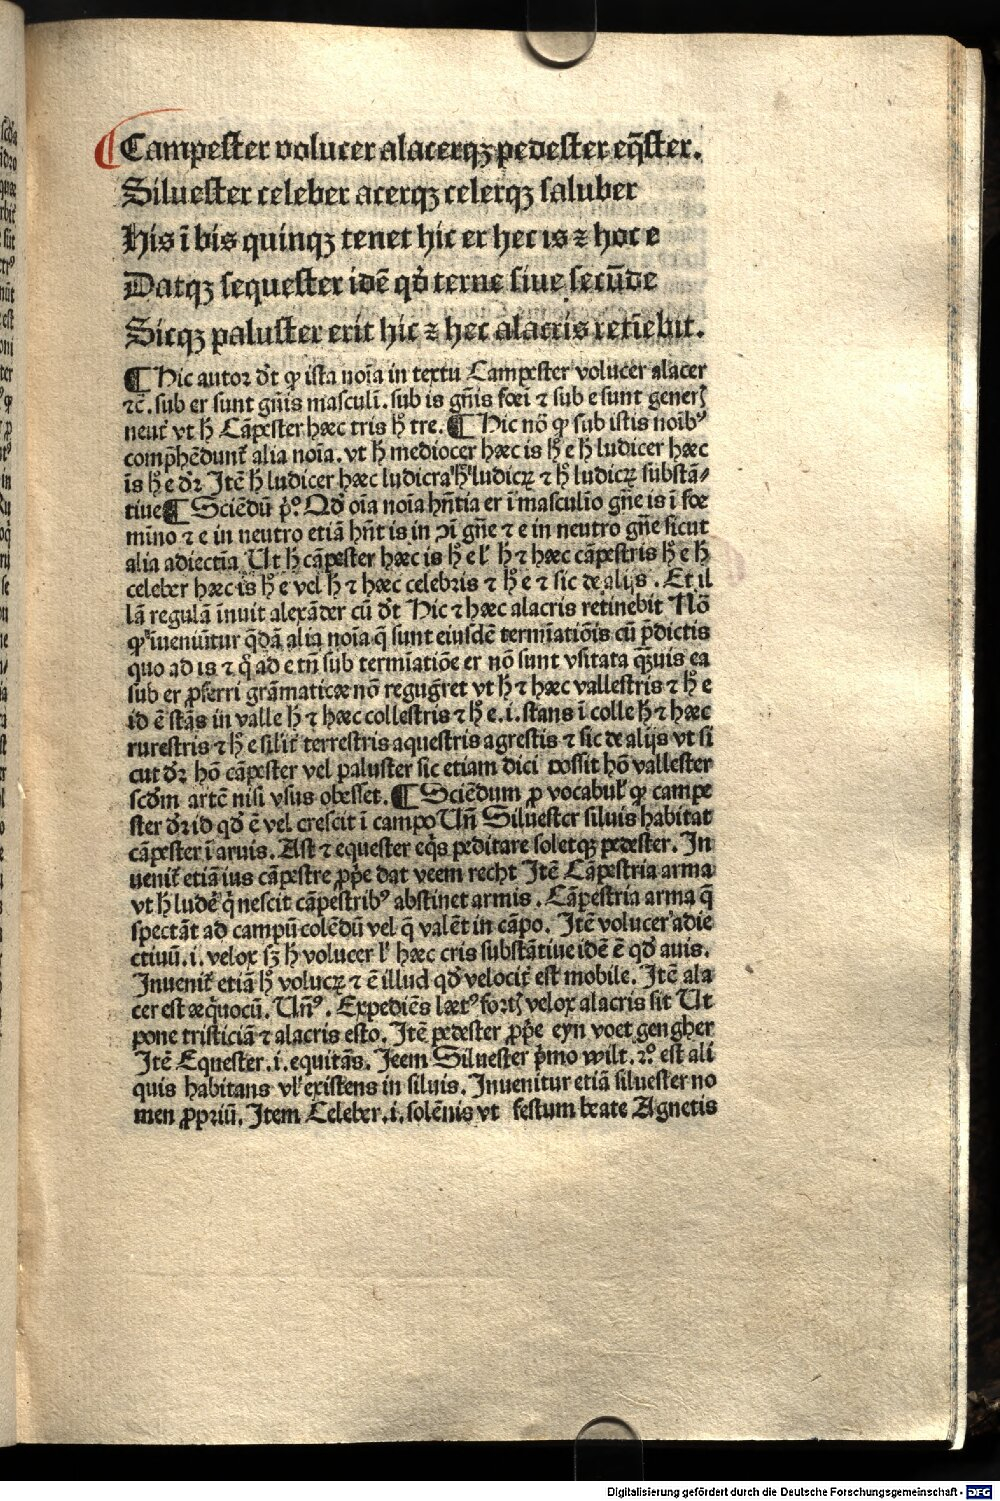 Campester volucer alacerqꝫ pedester eq̃ster.
Siluester celeber acerqꝫ celerqꝫ saluber
His ī bis quinqꝫ tenet hic er hec is ⁊ hoc e
Datqꝫ sequester idē qđ terne siue secūde
Sicqꝫ paluster erit hic ⁊ hec alacris retīebit.
¶ Hic autor dt̄ ꝙ ista noīa in textu Campester volucer alacer
⁊c̄. sub er sunt gn̄is masculī. sub is gn̄is fœī ⁊ sub e sunt generꝭ
neut᷑ vt h̄ Cāpester hæc tris hꝰ tre. ¶ Hic nō ꝙ sub istis noībꝰ
comp̄hēdunt᷑ alia noīa. vt h̄ mediocer hæc is hꝰ e h̄ ludicer hæc
is hꝰ e dr̄ꝛ Itē h̄ ludicer hæc ludicra hꝰ ludicꝝ ⁊ h̄ ludicꝝ substā-
tiue ¶ Sciēdū p̄ꝰ. Qđ oīa noīa hn̄tia er ī masculīo gn̄e is ī fœ
mīno ⁊ e in neutro etiā hn̄t is in ↄī gn̄e ⁊ e in neutro gn̄e sicut
alia adiectīa Ut h̄ cāpester hæc is hꝰ e ł h̄ ⁊ hæc cāpestris hꝰ e h̄
celeber hæc is hꝰ e vel h̄ ⁊ hæc celebris ⁊ hꝰ e ⁊ sic de alijs. Et il
lā regulā īnuit alexāder cū dt̄ Hic ⁊ hæc alacris retinebit Nō
ꝙ īueniūtur q̄dā alia noīa q̄ sunt eiusdē termīatiōis cū p̄dictis
quo ad is ⁊ q̊ ad e tn̄ sub termīatiōe er nō sunt vsitata qꝫuis ea
sub er ꝓferri grāmaticæ nō regug̃ret vt h̄ ⁊ hæc vallestris ⁊ hꝰ e
id ē stās in valle h̄ ⁊ hæc collestris ⁊ hꝰ e. i. stans ī colle h̄ ⁊ hæc
rurestris ⁊ hꝰ e silit᷑ terrestris aquestris agrestis ⁊ sic de alijs vt si
cut dr̄ꝛ hō cāpester vel paluster sic etiam dici possit hō vallester
scd̄m artē nisi vsus obesset. ¶ Sciēdum ꝓ vocabuł ꝙ campe
ster dr̄ꝛ id qđ ē vel crescit ī campo Un̄ Siluester siluis habitat
cāpester ī aruis. Ast ⁊ equester eq̊s peditare soletqꝫ pedester. In
uenit᷑ etiā ius cāpestre ꝓp̄e dat veem recht Itē Cāpestria arma
vt h̄ ludē q̊ nescit cāpestribꝰ abstinet armis. Cāpestria arma q̄
spectāt ad campū colēdū vel q̄ valēt in cāpo. Itē volucer adie
ctiuū. i. velox sꝫ h̄ volucer ł hæc cris substātiue idē ē qđ auis.
Inuenit᷑ etiā hꝰ volucꝝ ⁊ ē illud qđ velocit᷑ est mobile. Itē ala
cer est æq̊uocū. Un̄ꝰ. Expediēs lætꝰ fortꝭ velox alacris sit Ut
pone tristiciā ⁊ alacris esto. Itē pedester ꝓp̄e eyn voet gengher
Itē Equester. i. equitās. Jeem Siluester p̄mo wilt. ⁊ꝰ est ali
quis habitans vł existens in siluis. Inuenitur etiā siluester no
men ꝓpriū. Item Celeber. i. solēnis vt festum beate Agnetis
Digitalisierung gefördert durch die Deutsche Forschungsgemeinschaft - DFG